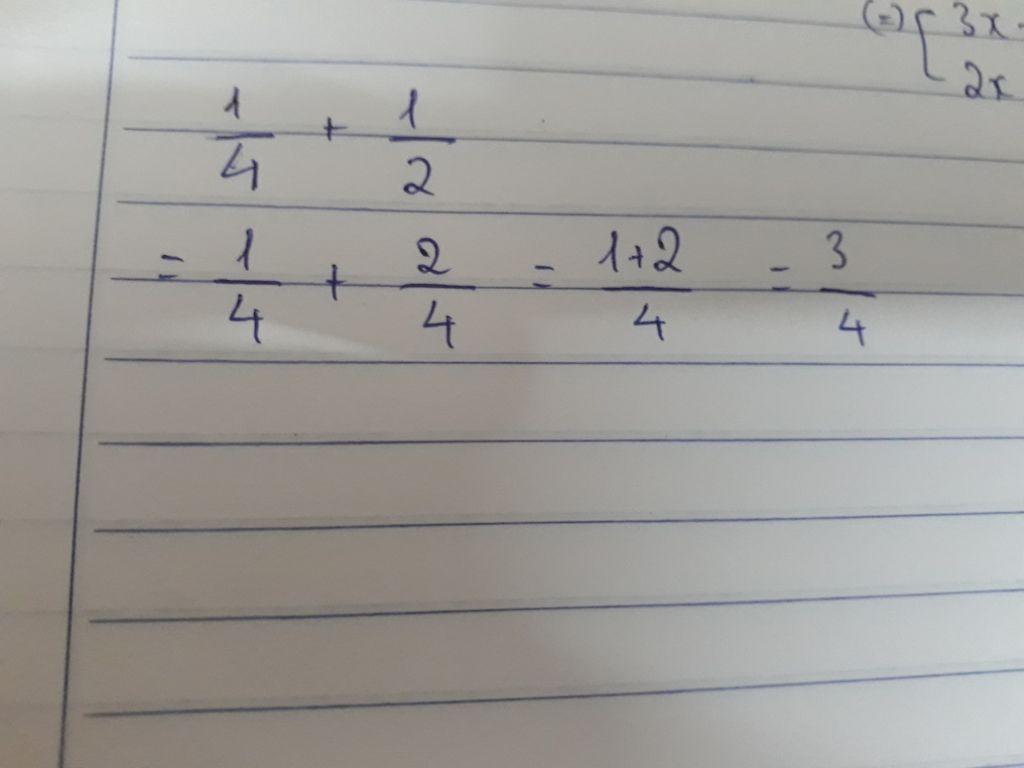 (=) { 3x
2x
1/4 + 1/2
= 1/4 + 2/4 = 1+2/4 = 3/4